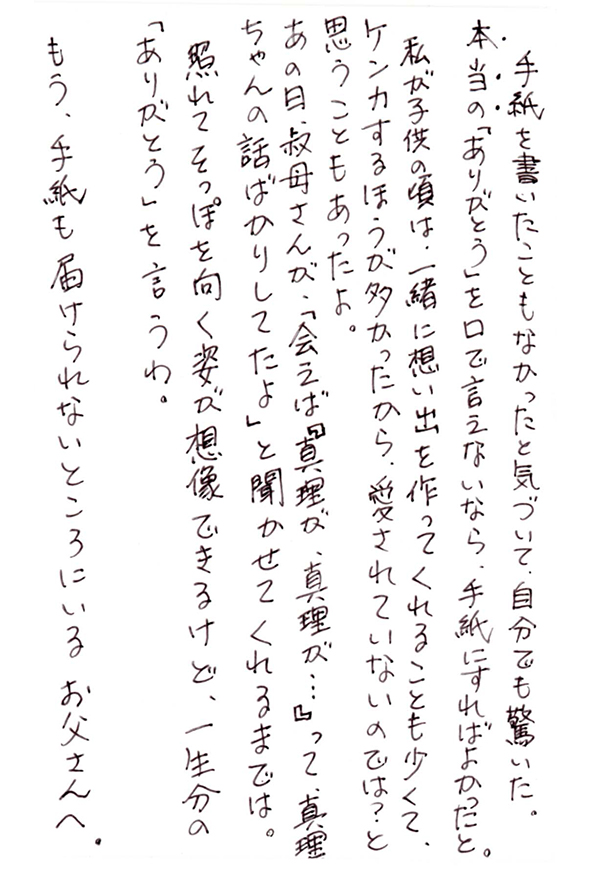 手紙を書いたこともなかったと気づいて、自分でも驚いた。
本当の「ありがとう」を口で言えないなら、手紙にすればよかったと。
私が子供の頃は、一緒に想い出を作ってくれることも少くて、
ケンカするほうが多かったから、愛されていないのでは?と
思うこともあったよ。
あの日、叔母さんが、「会えば『真理が、真理が…』って、真理
ちゃんの話ばかりしてたよ」と聞かせてくれるまでは。
照れてそっぽを向く姿が想像できるけど、一生分の
「ありがとう」を言うわ。
もう、手紙も届けられないところにいる お父さんへ。